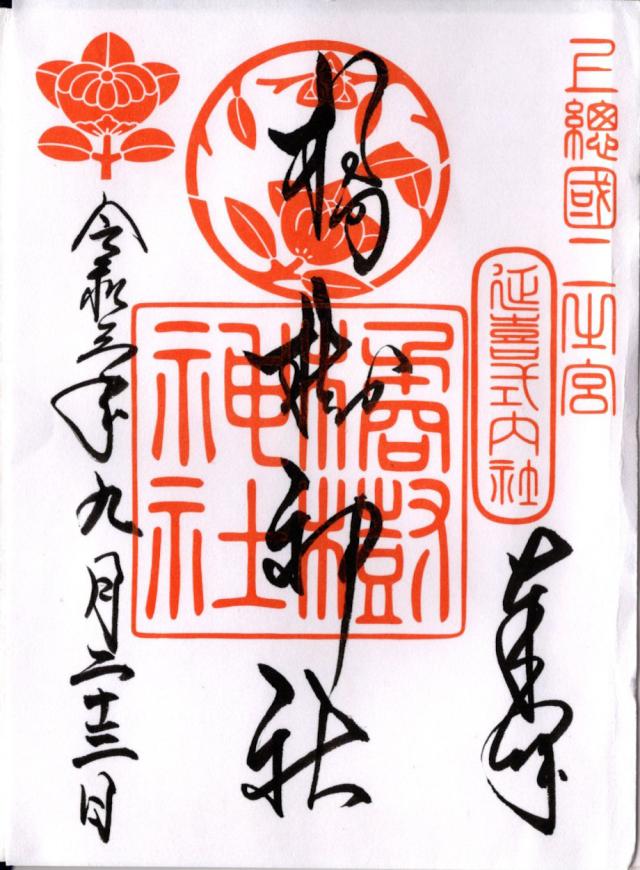 上總國二之宮
延喜式内社
奉拝
橘樹神社
橘樹神社
令和三年九月二十三日